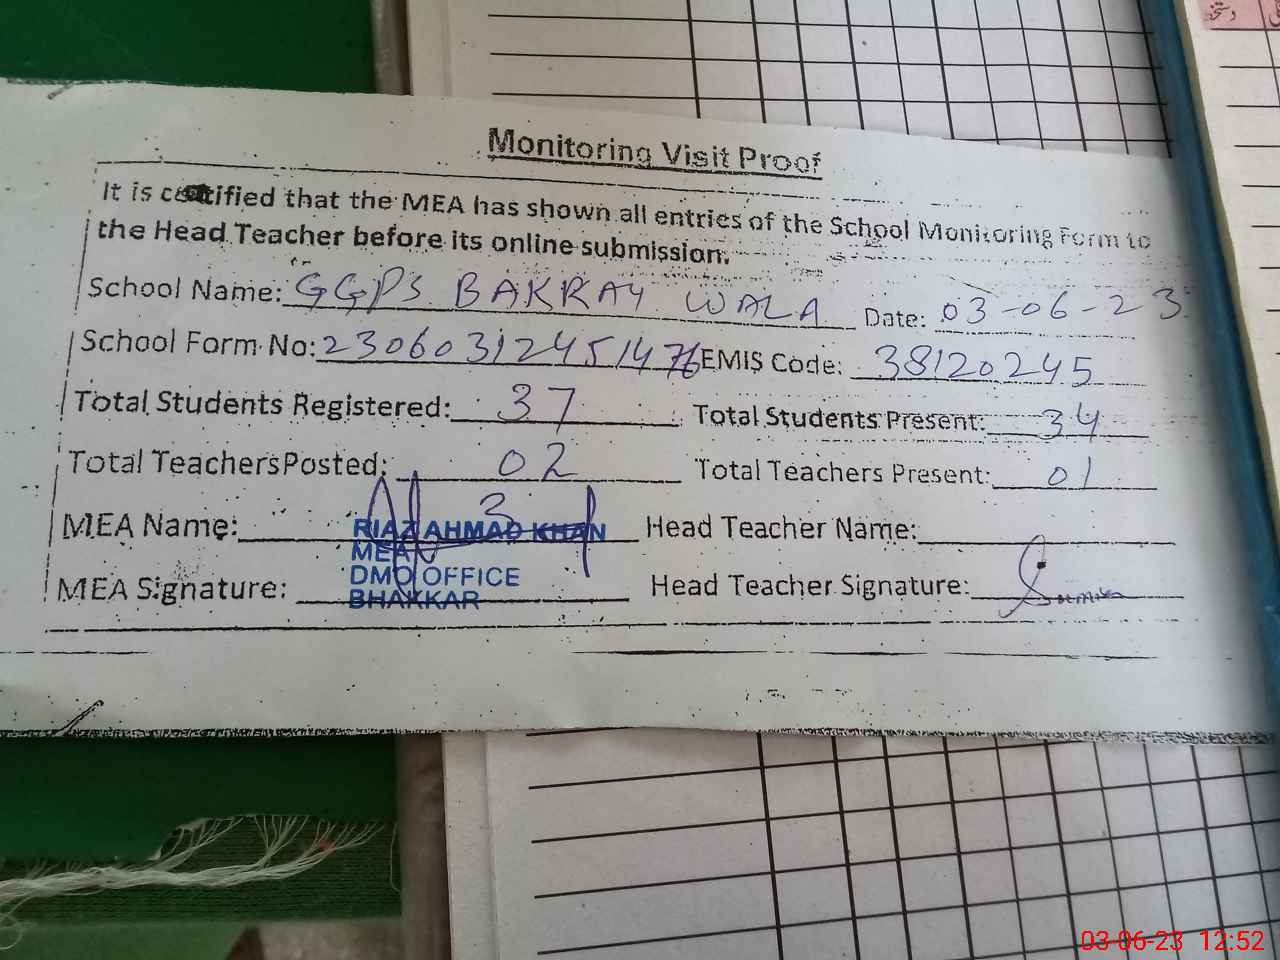 Monitoring Visit Proof
It is certified that the MEA has shown all entries of the School Monitoring Form to
the Head Teacher before its online submission.
School Name: GGPS BAKRAY WALA Date: 03-06-23
School Form No: 230603124514 EMIS Code: 38120245
Total Students Registered: 37 Total Students Present: 34
Total Teachers Posted: 02 Total Teachers Present: 01
MEA Name: RIAZ AHMAD KHAN Head Teacher Name:
MEA
DMO OFFICE
BHAKKAR
MEA Signature: Head Teacher Signature:
03-06-23 12:52